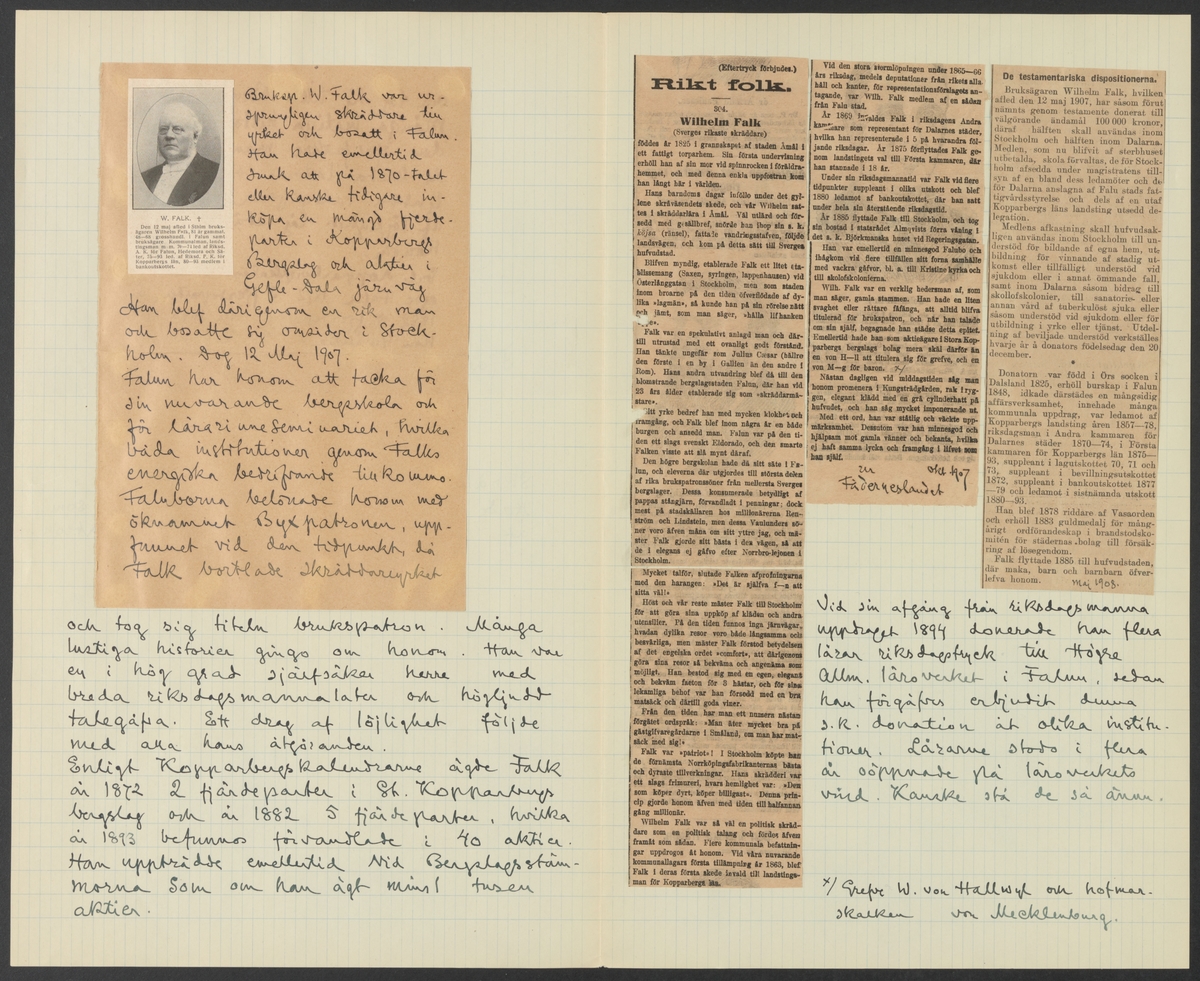 W. FALK. †
Den 12 maj afled i Ström bruks-
ägaren Wilhelm Falk, 81 år gammal.
Bruksp. W. Falk var ur-
sprungligen skräddare till
yrket och bosatt i Falun
Han hade emellertid
smak att på 1870-talet
eller kanske tidigare in-
köpa en mängd fjerde-
parter i Kopparbergs
Bergslag och aktier i
Gefle-Dala järnväg
Han blef därigenom en rik man
och bosatte sig omsider i Stock-
holm. Dog 12 Maj 1907.
Falun har honom att tacka för
sin nuvarande bergskola och
för lärarinneseminariet, hvilka
båda institutioner genom Falks
energiska bedrifvande tillkommo.
Faluborna belönade honom med
öknamnet Byxpatronen, upp-
funnet vid den tidpunkt, då
Falk bortlade skräddareyrket
och tog sig titeln brukspatron. Många
lustiga historier gingo om honom. Han var
en i hög grad självsäker herre med
breda riksdagsmannalater och högljudd
talegåfva. Ett drag af löjlighet följde
med alla hans åtgöranden.
Enligt Kopparbergskalendrarne ägde Falk
år 1872 2 fjärdeparter i St. Kopparbergs
bergslag och år 1882 5 fjärdeparter, hvilka
år 1893 befunnos förvandlade i 40 aktier.
Han uppträdde emellertid vid Bergslagsstäm-
morna som om han ägt minst tusen
aktier.
(Eftertryck förbjudes.)
Rikt folk.
304.
Wilhelm Falk
(Sveriges rikaste skräddare)
föddes år 1825 i grannskapet af staden Åmål i
ett fattigt torparhem. Sin första undervisning
erhöll han af sin mor vid spinnrocken i föräldra-
hemmet, och med denna enkla uppfostran kom
han långt här i världen.
Hans barndoms dagar inföllo under det gyl-
lene skråväsendets skede, och vår Wilhelm sat-
tes i skräddarlära i Åmål. Väl utlärd och för-
sedd med gesällbref, snörde han ihop sin s. k.
böjsa (ränsel), fattade vandringsstafven, följde
landsvägen, och kom på detta sätt till Sveriges
hufvudstad.
Blifven myndig, etablerade Falk ett litet eta-
blissemang (Saxen, syringen, lappenhausen) vid
Österlånggatan i Stockholm, men som staden
inom broarne på den tiden öfverflödade af dy-
lika »lagmän», så kunde han på sin rörelse nätt
och jämt, som man säger, »hålla lifhanken
Falk var en spekulativt anlagd man och där-
till utrustad med ett ovanligt godt förstånd.
Han tänkte ungefär som Julius Cæsar (hällre
den förste i en by i Gallien än den andre i
Rom). Hans andra utvandring blef då till den
blomstrande bergslagsstaden Falun, där han vid
23 års ålder etablerade sig som »skräddarmä-
stare».
Sitt yrke bedref han med mycken klokhet och
framgång, och Falk blef inom några år en både
burgen och ansedd man. Falun var på den ti-
den ett slags svenskt Eldorado, och den smarte
Falken visste att slå mynt däraf.
Den högre bergskolan hade då sitt säte i Fa-
lun, och eleverna där utgjordes till största delen
af rika brukspatronssöner från mellersta Sveriges
bergslager. Dessa konsumerade betydligt af
pappas stångjärn, förvandladt i penningar; dock
mest på stadskällaren hos millionärerna Ren-
ström och Lindstein, men dessa Vaulunders sö-
ner voro äfven måna om sitt yttre jag, och mä-
ster Falk gjorde sitt bästa i den vägen, så att
de i elegans ej gåfvo efter Norrbro-lejonen i
Stockholm.
Mycket talför, slutade Falken afprofningarna
med den harangen: »Det är själfva f—n att
sitta väl!»
Höst och vår reste mäster Falk till Stockholm
för att göra sina uppköp af kläden och andra
utensilier. På den tiden funnos inga järnvägar,
hvadan dylika resor voro både långsamma och
besvärliga, men mäster Falk förstod betydelsen
af det engelska ordet »comfort», att därigenom
göra sina resor så bekväma och angenäma som
möjligt. Han bestod sig med en egen, elegant
och bekväm faston för 3 hästar, och för sina
lekamliga behof var han försedd med en bra
matsäck och därtill goda viner.
Från den tiden har man ett numera nästan
förgätet ordspråk: »Man äter mycket bra på
gästgifvaregårdarne i Småland, om man har mat-
säck med sig!»
Falk var »patriot»! I Stockholm köpte han
de förnämsta Norrköpingsfabrikanternas bästa
och dyraste tillverkningar. Hans skrädderi var
ett slags frimureri, hvars hemlighet var: »Den
som köper dyrt, köper billigast». Denna prin-
cip gjorde honom äfven med tiden till halfannan
gång millionär.
Wilhelm Falk var så väl en politisk skräd-
dare som en politisk talang och fördes äfven
framåt som sådan. Flere kommunala befattnin-
gar uppdrogos åt honom. Vid våra nuvarande
kommunallagars första tillämpning år 1863, blef
Falk i deras första skede invald till landstings-
man för Kopparbergs län.
Vid den stora stormlöpningen under 1865—66
års riksdag, medels deputationer från rikets alla
håll och kanter, för representationsförslagets an-
tagande, var Wilh. Falk medlem af en sådan
från Falu stad.
År 1869 invaldes Falk i riksdagens Andra
kammare som representant för Dalarnes städer,
hvilka han representerade i 5 på hvarandra föl-
jande riksdagar. År 1875 förflyttades Falk ge-
nom landstingets val till Första kammaren, där
han stannade i 18 år.
Under sin riksdagsmannatid var Falk vid flere
tidpunkter suppleant i olika utskott och blef
1880 ledamot af bankoutskottet, där han satt
under hela sin återstående riksdagstid.
År 1885 flyttade Falk till Stockholm, och tog
sin bostad i statsrådet Almqvists förra våning i
det s. k. Björkmanska huset vid Regeringsgatan.
Han var emellertid en minnesgod Falubo och
ihågkom vid flere tillfällen sitt forna samhälle
med vackra gåfvor, bl. a. till Kristine kyrka och
till skolofskolonierna.
Wilh. Falk var en verklig hedersman af, som
man säger, gamla stammen. Han hade en liten
svaghet eller rättare fåfänga, att alltid blifva
titulerad för brukspatron, och när han talade
om sin själf, begagnade han städse detta epitet.
Emellertid hade han som aktieägare i Stora Kop-
parbergs bergslags bolag mera skäl därför än
en von H—ll att titulera sig för grefve, och en
von M—g för baron. x/
Nästan dagligen vid middagstiden såg man
honom promenera i Kungsträdgården, rak i ryg-
gen, elegant klädd med en grå cylinderhatt på
hufvudet, och han såg mycket imponerande ut.
Med ett ord, han var ståtlig och väckte upp-
märksamhet. Dessutom var han minnesgod och
hjälpsam mot gamla vänner och bekanta, hvilka
ej haft samma lycka och framgång i lifvet som
han själf.
ur Okt 1907
Fäderneslandet
De testamentariska dispositionerna.
Bruksägaren Wilhelm Falk, hvilken
afled den 12 maj 1907, har såsom förut
nämnts genom testamente donerat till
välgörande ändamål 100 000 kronor,
däraf hälften skall användas inom
Stockholm och hälften inom Dalarna.
Medlen, som nu blifvit af sterbhuset
utbetalda, skola förvaltas, de för Stock-
holm afsedda under magistratens till-
syn af en bland dess ledamöter och de
för Dalarna anslagna af Falu stads fat-
tigvårdsstyrelse och dels af en utaf
Kopparbergs läns landsting utsedd de-
legation.
Medlens afkastning skall hufvudsak-
ligen användas inom Stockholm till un-
derstöd för bildande af egna hem, ut-
bildning för vinnande af stadig ut-
komst eller tillfälligt understöd vid
sjukdom eller för ömmande fall,
samt inom Dalarna såsom bidrag till
skollofskolonier, till sanatorie- eller
annan vård af tuberkulöst sjuka eller
såsom understöd vid sjukdom eller för
utbildning i yrke eller tjänst. Utdel-
ning af beviljade understöd verkställes
hvarje år å donators födelsedag den 20
december.
Donatorn var född i Örs socken i
Dalsland 1825, erhöll burskap i Falun
1848, idkade därstädes en mångsidig
affärsverksamhet, innehade många
kommunala uppdrag, var ledamot af
Kopparbergs landsting åren 1857—78,
riksdagsman i Andra kammaren för
Dalarnes städer 1870—74, i Första
kammaren för Kopparbergs län 1875—
93, suppleant i lagutskottet 70, 71 och
73, suppleant i bevillningsutskottet
1872, suppleant i bankoutskottet 1877
—79 och ledamot i sistnämnda utskott
1880—93.
Han blef 1878 riddare af Vasaorden
och erhöll 1883 guldmedalj för mång-
årigt ordförandeskap i brandstodsko-
mitén för städernas bolag till försäk-
ring af lösegendom.
Falk flyttade 1885 till hufvudstaden,
där maka, barn och barnbarn öfver-
lefva honom.
Maj 1908.
Vid sin afgång från riksdagsmanna
uppdraget 1894 donerade han flera
lårar riksdagstryck till Högre
Allm. läroverket i Falun, sedan
han förgäfves erbjudit denna
s.k. donation åt olika institu-
tioner. Lårarne stodo i flera
år oöppnade på läroverkets
vind. Kanske stå de så ännu.
x/ Grefve W. von Hallwyl och hofmar-
skalken von Mecklenburg.